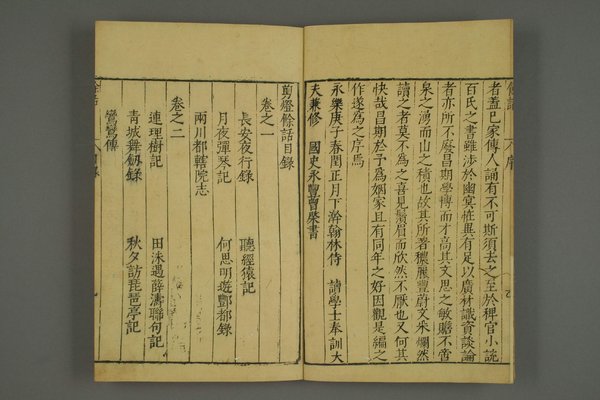 者蓋已家傳人誦有不可斯須去之至於稗官小說
百氏之書雖涉於幽冥恠異有足以廣材識資談論
者亦所不廢昌期學博而才高其文思之敏贍不啻
泉之湧而山之積也故其所著穠麗豐蔚文采爛然
讀之者莫不為之喜見鬚眉而欣然不厭也又何其
快哉昌期於予為姻家且有同年之好因觀是編之
作遂為之序焉
永樂庚子春閏正月下澣翰林侍 讀學士奉訓大
夫兼修 國史永豐曾棨書
剪燈餘話目錄
卷之一
長安夜行錄 聽經猿記
月夜彈琴記 何思明遊酆都錄
兩川都轄院志
卷之二
連理樹記 田洙遇薛濤聯句記
青城舞劔錄 秋夕訪琵琶亭記
鸞鸞傳